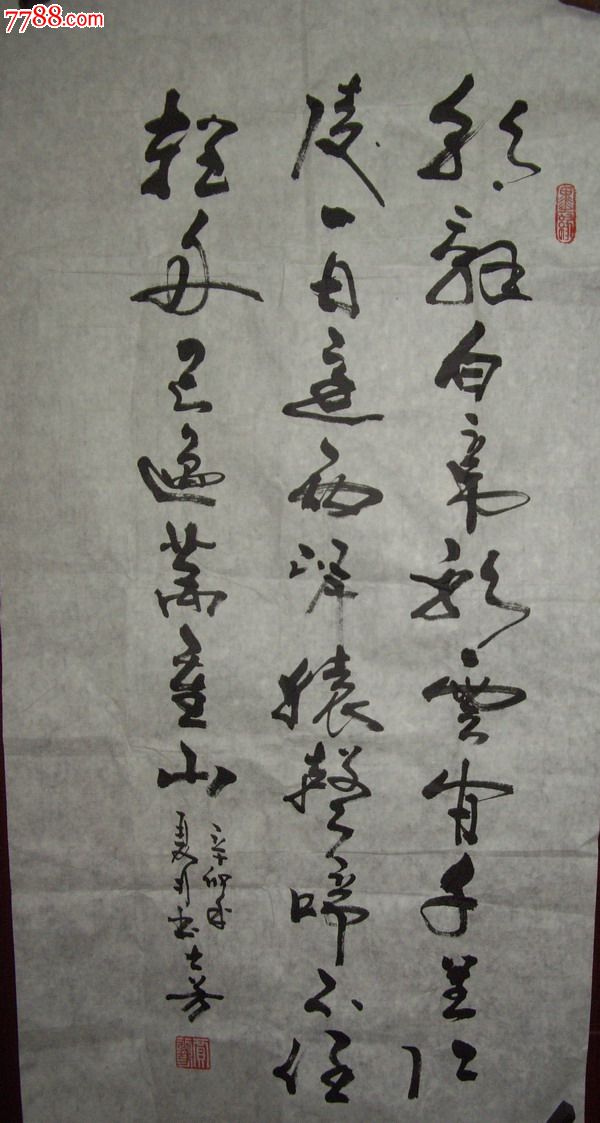 7788.com
朝辭白帝彩雲间千里江
陵一日還兩岸猿聲啼不住
輕舟已過萬重山
辛卯年
夏月书